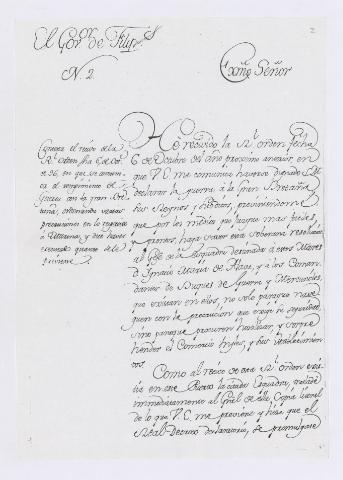 2
El Gov.or de Filip.s
N. 2
Exmo Señor
Contexta el recivo de la
Rl. Orden fha 6 de Oct.
de 96, en que se comunica
el rompimiento de
Guerra con la gran Bre-
taña, ordenando varias
precauciones en lo
y dice haver
executado quanto se le
previene
He recivido la Rl. orden fecha
6 de Octubre del año proximo anterior, en
que V.E. me comunica haverse dignado S.M.
declarar la guerra à la Gran Bretaña
sus Reynos, y Subditos, previniendome
que por los medios que juzgue mas faciles,
y prontos, haga saver esta Soberana resolucion
al Gefe de la Esquadra destinada a estos Mares
Dn Ignacio Maria de Alava, y a los Coman-
dantes de Buques de Guerra y Mercantes,
que existan en ellos, no solo paraque nave-
guen con la precaucion que exige su seguridad,
sino paraque procuren hostilizar, y sorpre-
hender el Comercio Ingles, y sus Establecimien-
tos.
Como al recivo de esta Rl. orden exis-
tia en este Puerto la citada Esquadra, trasladé
immediatamente al Gral de ella Copia literal
de lo que V.E. me previene y hise que el
Real Decreto declaratorio, se promulgase